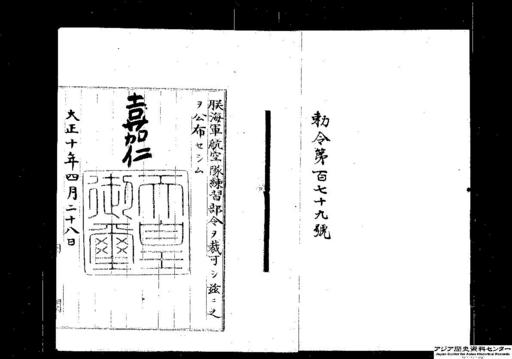 勅令第百七十九號
朕海軍航空隊練習部令ヲ裁可シ茲ニ之
ヲ公布セシム
嘉仁
天皇
御璽
大正十年四月二十八日
アジア歴史資料センター
Japan Center for Asian Historical Records